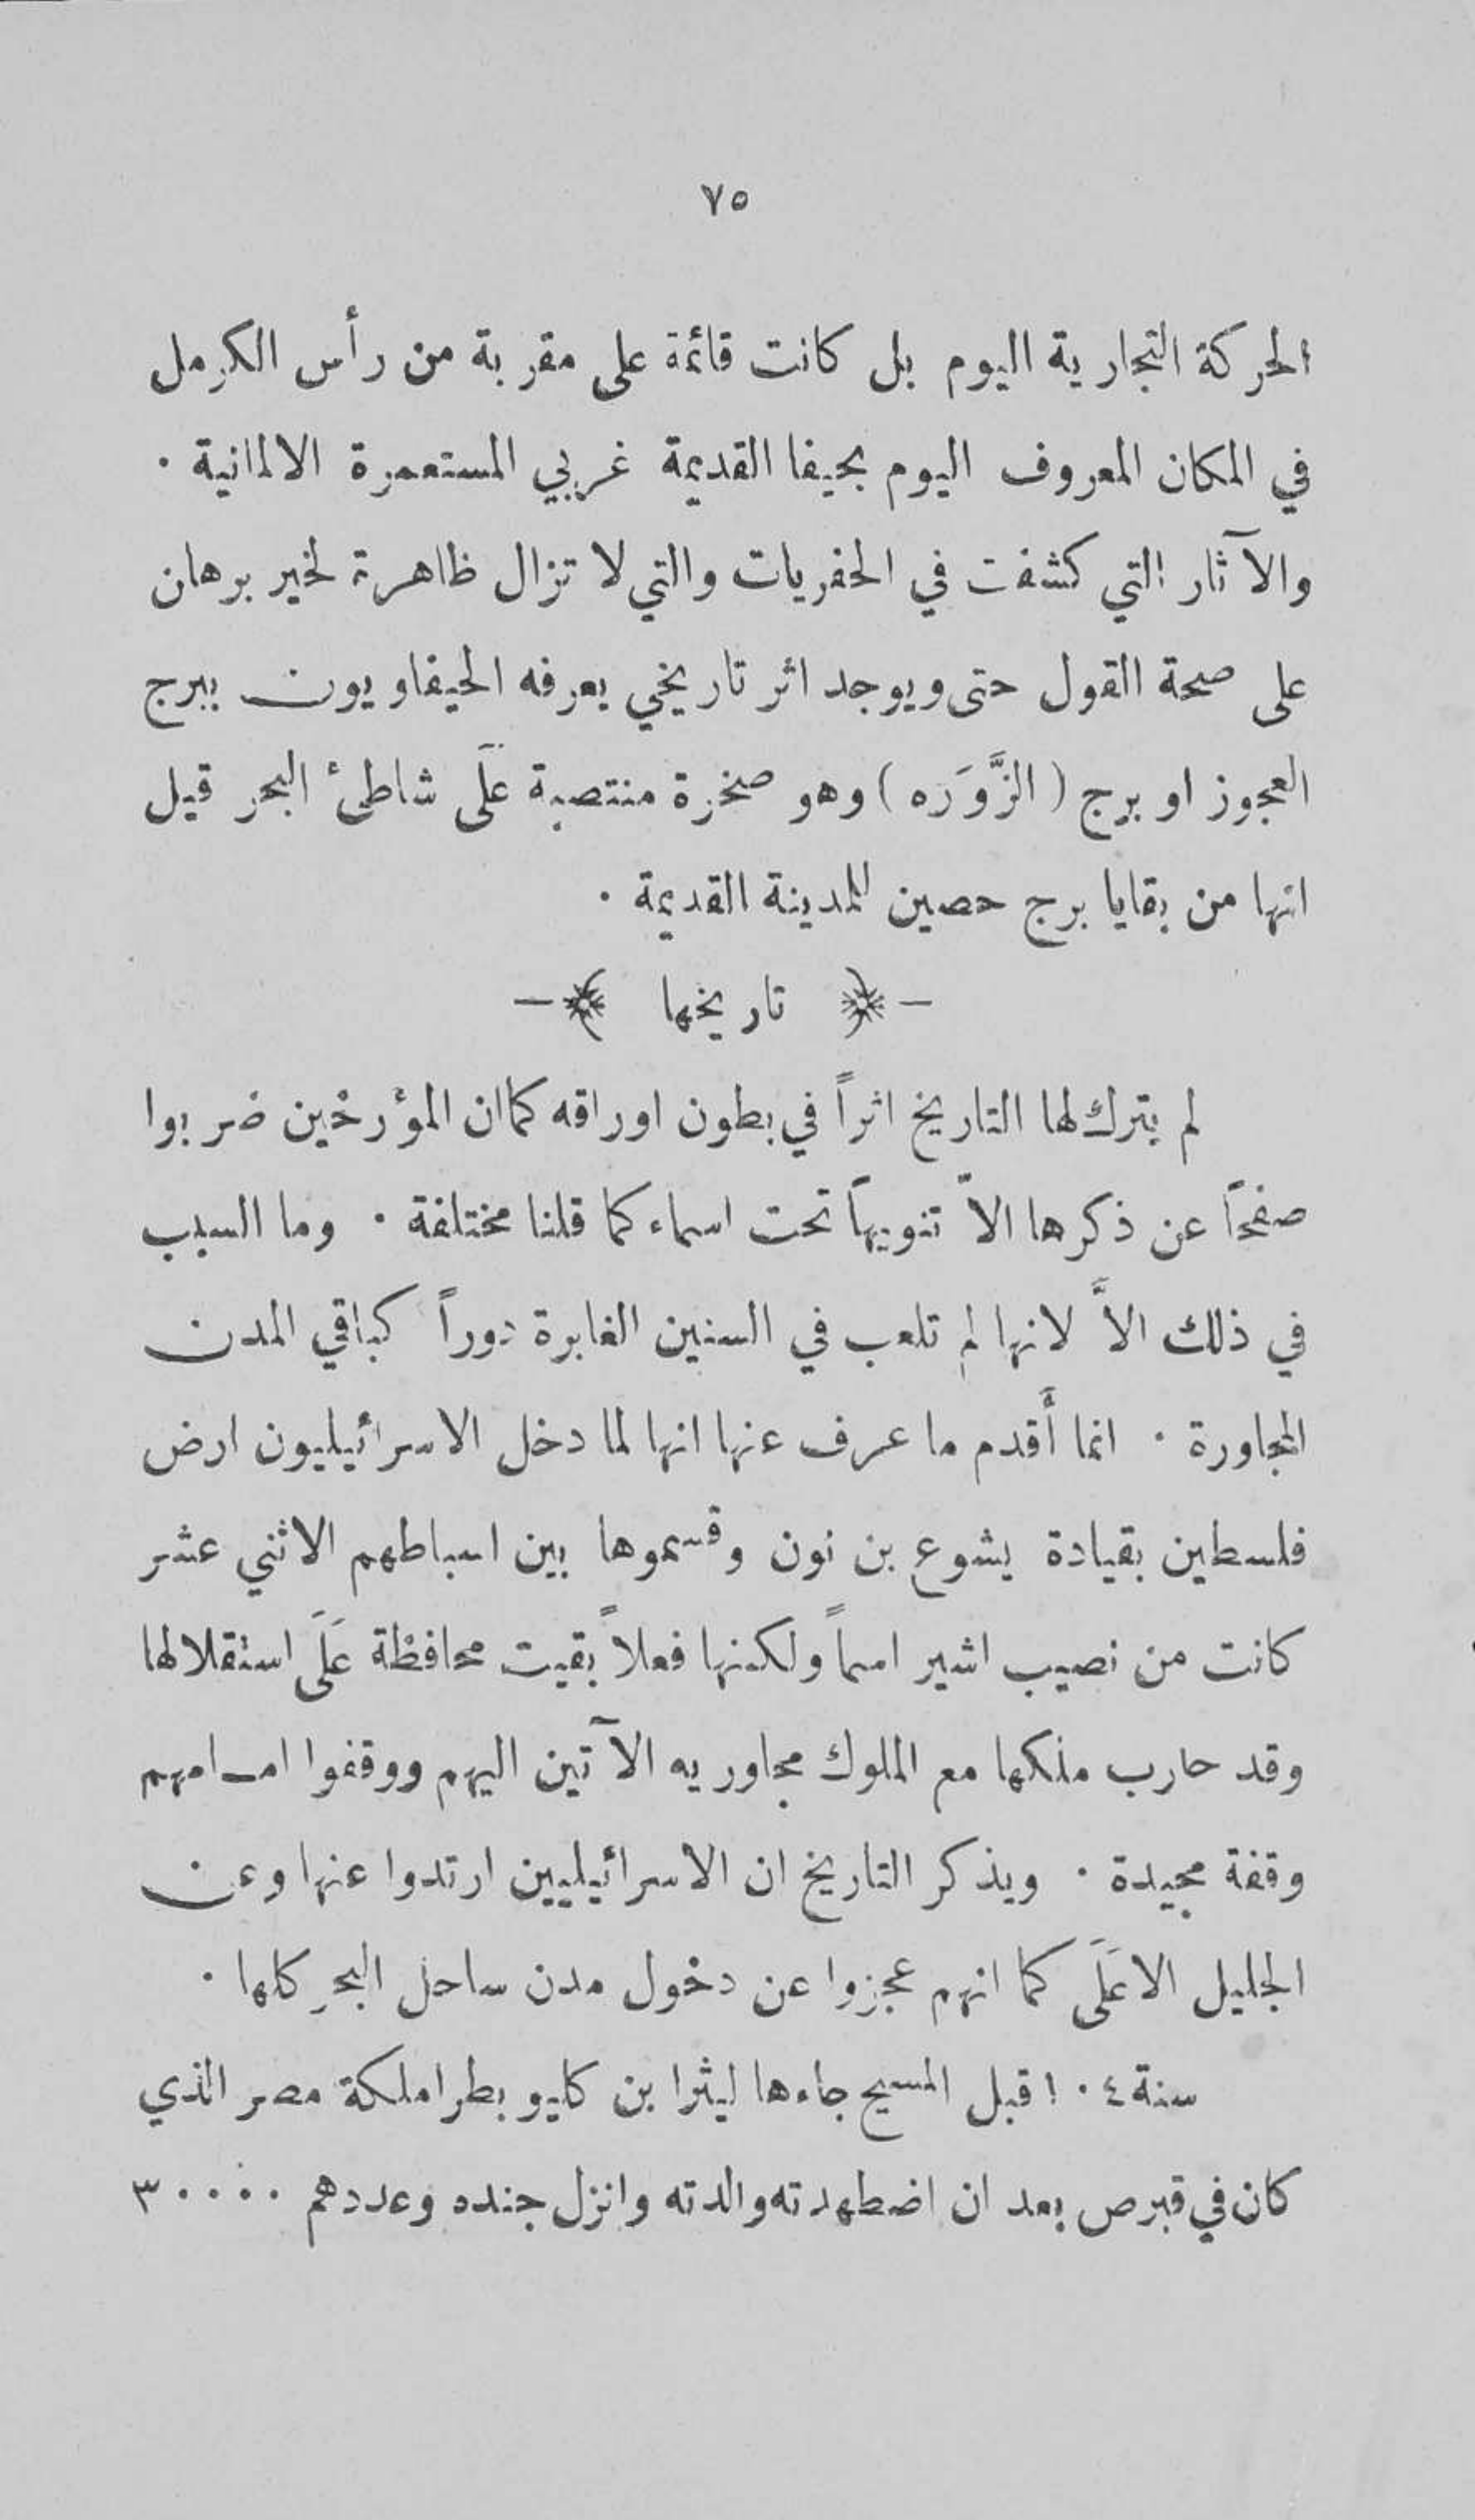 ٧٥
الحركة التجارية اليوم بل كانت قائمة على مقربة من رأس الكرمل
في المكان المعروف اليوم بحيفا القديمة غربي المستعمرة الالمانية ٠
والآثار التي كشفت في الحفريات والتي لا تزال ظاهرة لخير برهان
على صحة القول حتى ويوجد اثر تاريخي يعرفه الحيفاويون ببرج
العجوز او برج ( الزَّوَرَه ) وهو صخرة منتصبة عَلَى شاطئ البحر قيل
انها من بقايا برج حصين للمدينة القديمة ٠
-﴿ تاريخها ﴾-
لم يترك لها التاريخ اثراً في بطون اوراقه كما ان المؤرخين ضربوا
صفحاً عن ذكرها الاّ تنويهاً تحت اسماء كما قلنا مختلفة ٠ وما السبب
في ذلك الاَّ لانها لم تلعب في السنين الغابرة دوراً كباقي المدن
المجاورة ٠ انما أَقدم ما عرف عنها انها لما دخل الاسرائيليون ارض
فلسطين بقيادة يشوع بن نون وقسموها بين اسباطهم الاثني عشر
كانت من نصيب اشير اسماً ولكنها فعلاً بقيت محافظة عَلَى استقلالها
وقد حارب ملكها مع الملوك مجاوريه الآتين اليهم ووقفوا امامهم
وقفة مجيدة ٠ ويذكر التاريخ ان الاسرائيليين ارتدوا عنها وعن
الجليل الاعَلَى كما انهم عجزوا عن دخول مدن ساحل البحر كلها ٠
سنة ١٠٤ قبل المسيح جاءها ليثرا بن كليوبطرا ملكة مصر الذي
كان في قبرص بعد ان اضطهدته والدته وانزل جنده وعددهم ٣٠٠٠٠